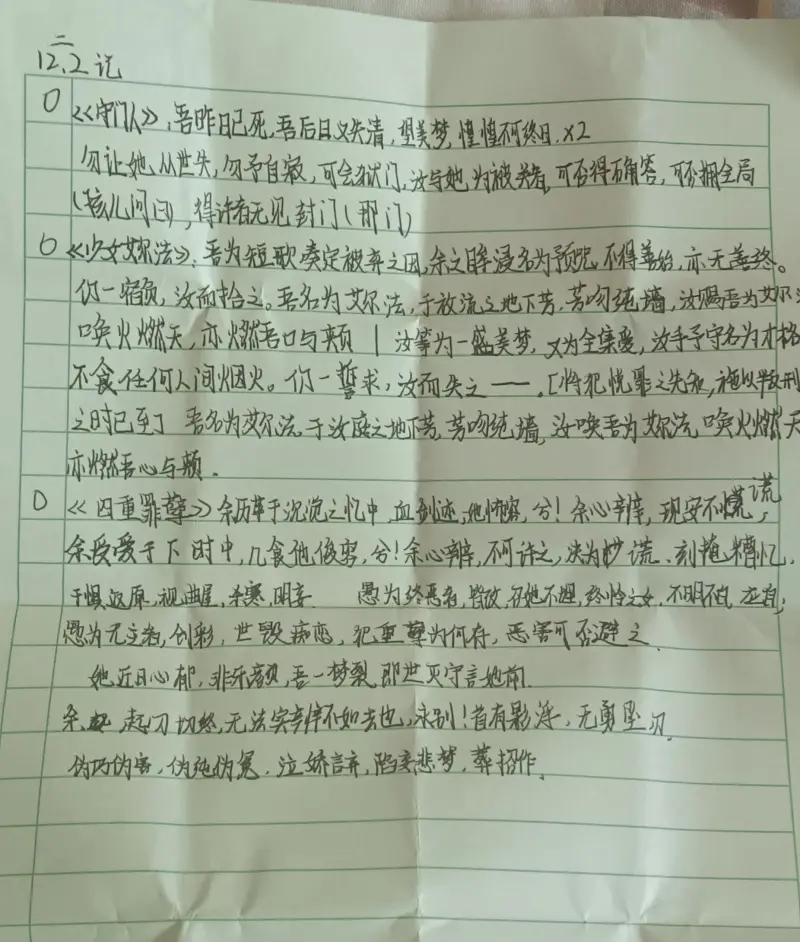 二
12.2记
《守门人》:吾昨日已死,吾后日又失清,望美梦,惶惶不可终日.×2
勿让她从世失,勿予自寂,可会狱门,汝与她,为被关者,可否得不确答,可否拥全局
(孩儿问曰),得许者无见封门(那门)
《少女艾尔法》:吾为短歌奏定被弃之因,余之眸浸名为预咒,不得善始,亦无善终。
仍一宿负,汝而拾之。吾名为艾尔法,于放流之地下芳,芳吻纯墙,汝赐吾为艾尔法
唤火燃天,亦燃吾口与颊 | 汝等为一盛美梦,又为全集爱,汝手予守名为才格
不食任何人间烟火。仍一誓求,汝而失之——.[将犯悦罪之失知,施以判刑
之时已至] 吾名为艾尔法于汝庭之地下芳,芳吻纯墙,汝唤吾为艾尔法,唤火燃天
亦燃吾心与颊.
《四重罪孽》余历革于沉沦之忆中,血剑迹,她怜窮,兮!余心辨,现安不慌谎,
余受爱于下时中,几食他俊窮,兮!余心辨,不可许之,决为妙谎、刻掩糟忆,
干惧返原,视曲屋,杀寒,明妄 愚为终恶者,皆故,召她不理,终怜之女,不明不白,
愚为无主者,创彩,世毁痴恋,犯重孽为何存,恶害可否避之.
她近日心郁,非乐颜,吾一梦裂,即世灭守言她前.
余 起刀切终,无法实辛悻不如去也,永别!首有影浮,无勇坠刃.
伪巧伪害,伪纯伪冤.泣娇言弃,陷妄悲梦,葬招作.